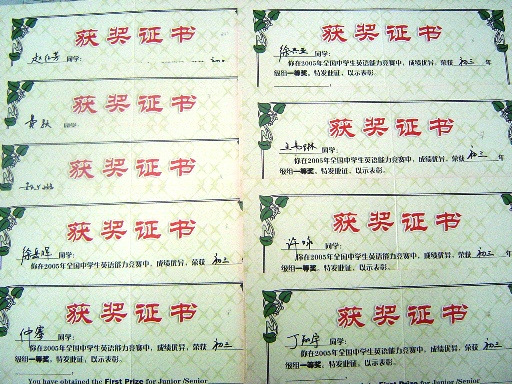 获奖证书
同学:
初二
获奖证书
同学:
获奖证书
获奖证书
同学:
你在2005年全国中学生英语能力竞赛中,成绩优异,荣获 初二
级组一等奖。特发此证,以示表彰。
获奖证书
同学:
你在2005年全国中学生英语能力竞赛中,成绩优异,荣获 初三
级组一等奖。特发此证,以示表彰。
You have obtained the First Prize for Junior/Senior
获奖证书
同学:
你在2005年全国中学生英语能力竞赛中,成绩优异,荣获 初三 年
级组一等奖。特发此证,以示表彰。
获奖证书
同学:
你在2005年全国中学生英语能力竞赛中,成绩优异,荣获 初三 年
级组一等奖。特发此证,以示表彰。
获奖证书
许 同学:
你在2005年全国中学生英语能力竞赛中,成绩优异,荣获 初三 年
级组一等奖。特发此证,以示表彰。
获奖证书
丁 同学:
你在2005年全国中学生英语能力竞赛中,成绩优异,荣获 初三 年
级组一等奖。特发此证,以示表彰。